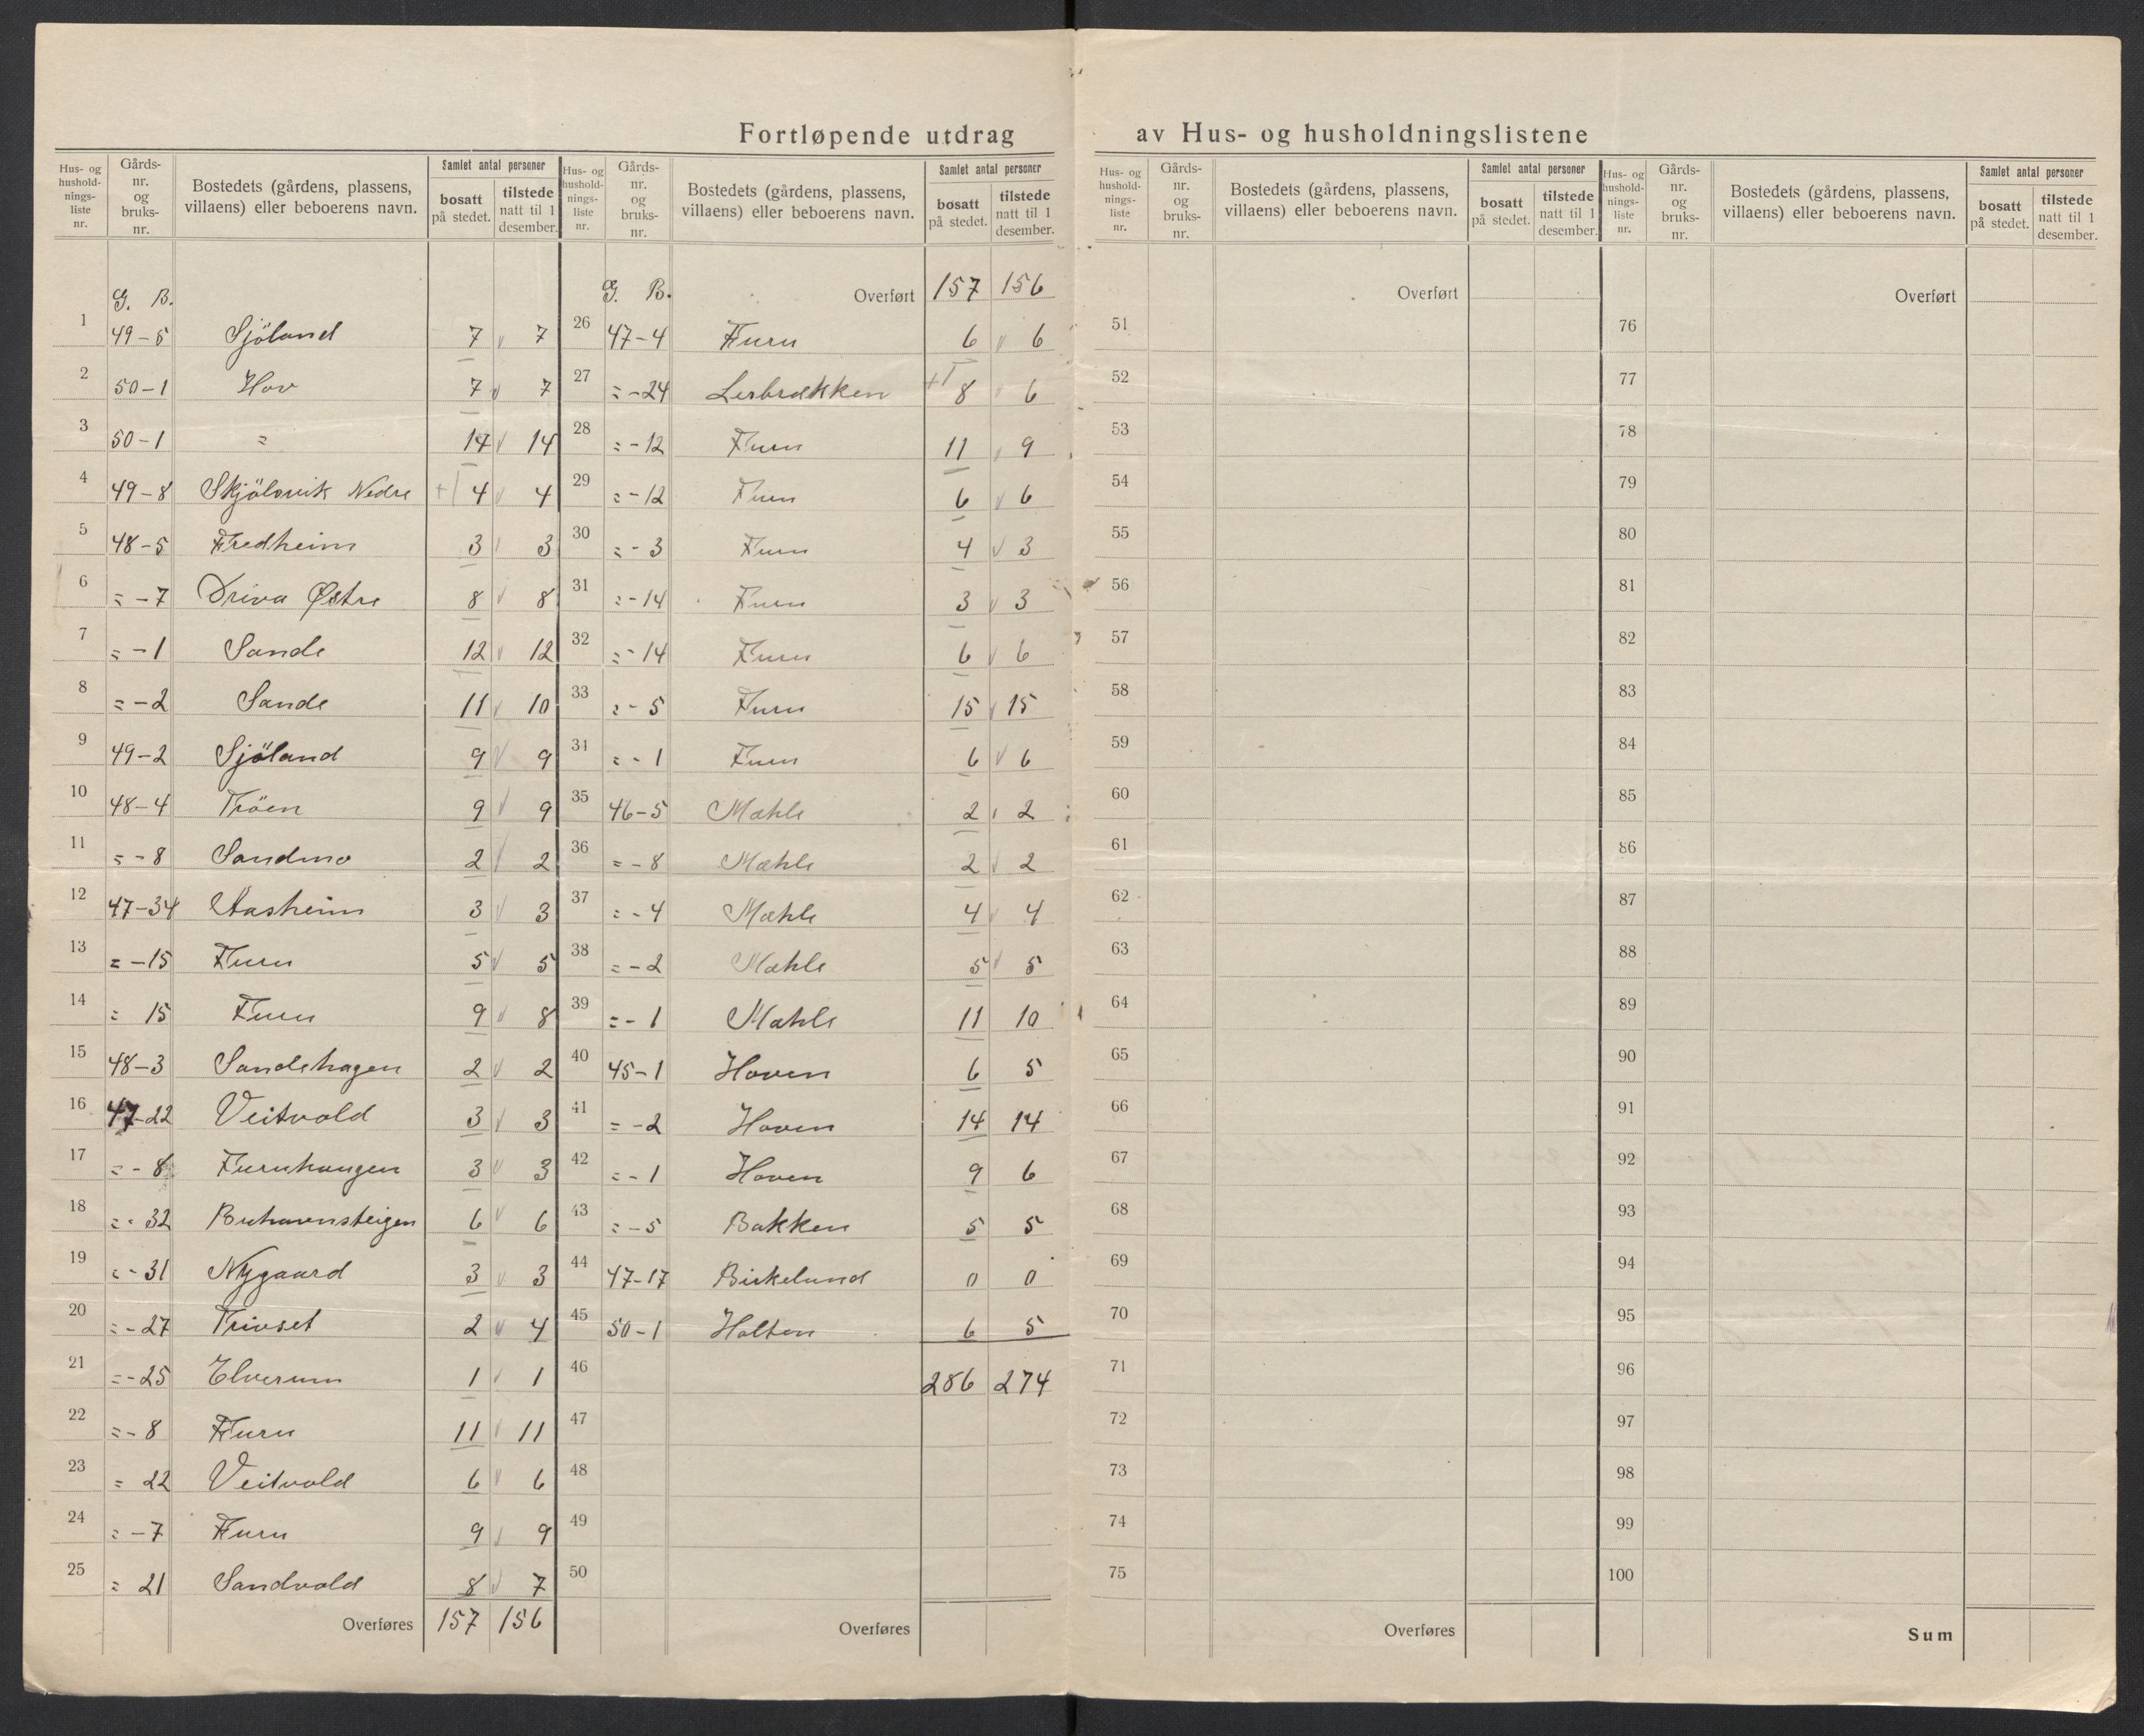 Fortløpende utdrag av Hus- og husholdningslistene
Hus- og husholdningsliste nr. | Gårds-nr. og bruks-nr. | Bostedets (gårdens, plassens, villaens) eller beboerens navn. | Samlet antal personer | bosatt på stedet. | tilstede natt til 1 desember.
G. B.
1 49-5 Sjöland 7 7
2 50-1 Hov 7 7
3 50-1 = 14 14
4 49-8 Skjölsvik Nedre +1 4 4
5 48-5 Fredheim 3 3
6 = -7 Driva Østre 8 8
7 = -1 Sande 12 12
8 = -2 Sande 11 10
9 49-2 Sjöland 9 9
10 48-4 Tröen 9 9
11 = -8 Sandmo 2 2
12 47-34 Aasheim 3 3
13 = -15 Furu 5 5
14 = 15 Furu 9 8
15 48-3 Sandehagen 2 2
16 47-22 Veitvold 3 3
17 = -8 Furuhaugen 3 3
18 = -32 6 6
19 = -31 Nygaard 3 3
20 = -27 Trivset 2 4
21 = -25 Elverum 1 1
22 = -8 Furu 11 11
23 = 22 Veitvold 6 6
24 = -7 Furu 9 9
25 = 21 Sandvold 8 7
Overføres 157 156
Hus- og husholdningsliste nr. | Gårds-nr. og bruks-nr. | Bostedets (gårdens, plassens, villaens) eller beboerens navn. | Samlet antal personer | bosatt på stedet. | tilstede natt til 1 desember.
G. B. Overført 157 156
26 47-4 Furu 6 6
27 = -24 Lerbrækken +1 8 6
28 = -12 Furu 11 9
29 = -12 Furu 6 6
30 = -3 Furu 4 3
31 = -14 Furu 3 3
32 = -14 Furu 6 6
33 = -5 Furu 15 15
34 = -1 Furu 6 6
35 46-5 Mæhle 2 2
36 = -8 Mæhle 2 2
37 = -4 Mæhle 4 4
38 = -2 Mæhle 5 5
39 = -1 Mæhle 11 10
40 45-1 Hoven 6 5
41 = -2 Hoven 14 14
42 = -1 Hoven 9 6
43 = -5 Bakken 5 5
44 47-17 Birkelund 0 0
45 50-1 Holten 6 5
46 286 274
47
48
49
50
Overføres
Hus- og husholdningsliste nr. | Gårds-nr. og bruks-nr. | Bostedets (gårdens, plassens, villaens) eller beboerens navn. | Samlet antal personer | bosatt på stedet. | tilstede natt til 1 desember.
Overført
51
52
53
54
55
56
57
58
59
60
61
62
63
64
65
66
67
68
69
70
71
72
73
74
75
Overføres
Hus- og husholdningsliste nr. | Gårds-nr. og bruks-nr. | Bostedets (gårdens, plassens, villaens) eller beboerens navn. | Samlet antal personer | bosatt på stedet. | tilstede natt til 1 desember.
Overført
76
77
78
79
80
81
82
83
84
85
86
87
88
89
90
91
92
93
94
95
96
97
98
99
100
Sum